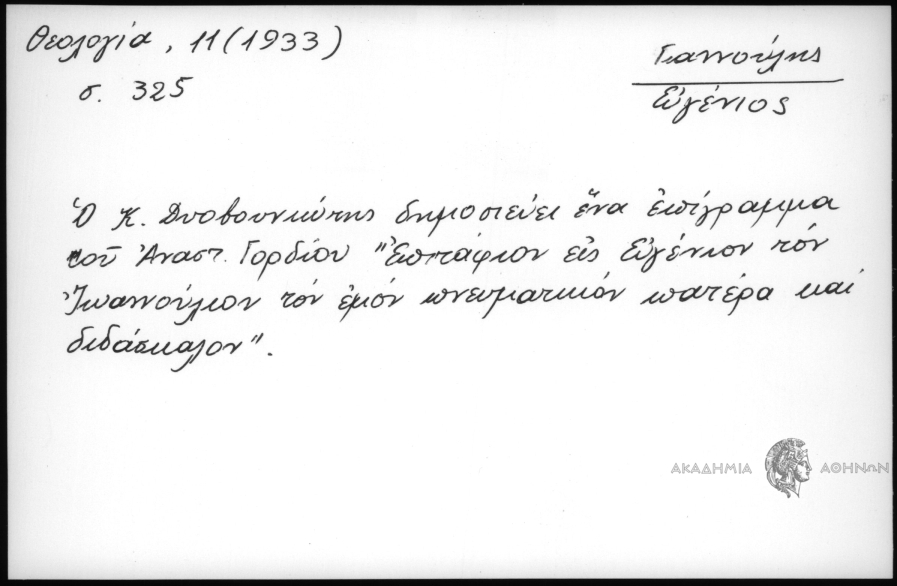 Θεολογία, 11 (1933)
σ. 325
Γιαννούλης
Εὐγένιος
Ὁ Κ. Δυοβουνιώτης δημοσιεύει ἕνα ἐπίγραμμα
τοῦ Ἀναστ. Γορδίου "Ἐπιτάφιον εἰς Εὐγένιον τὸν
Ἰωαννούλιον τὸν ἐμόν πνευματικόν πατέρα καί
διδάσκαλον".
ΑΚΑΔΗΜΙΑ ΑΘΗΝΩΝ